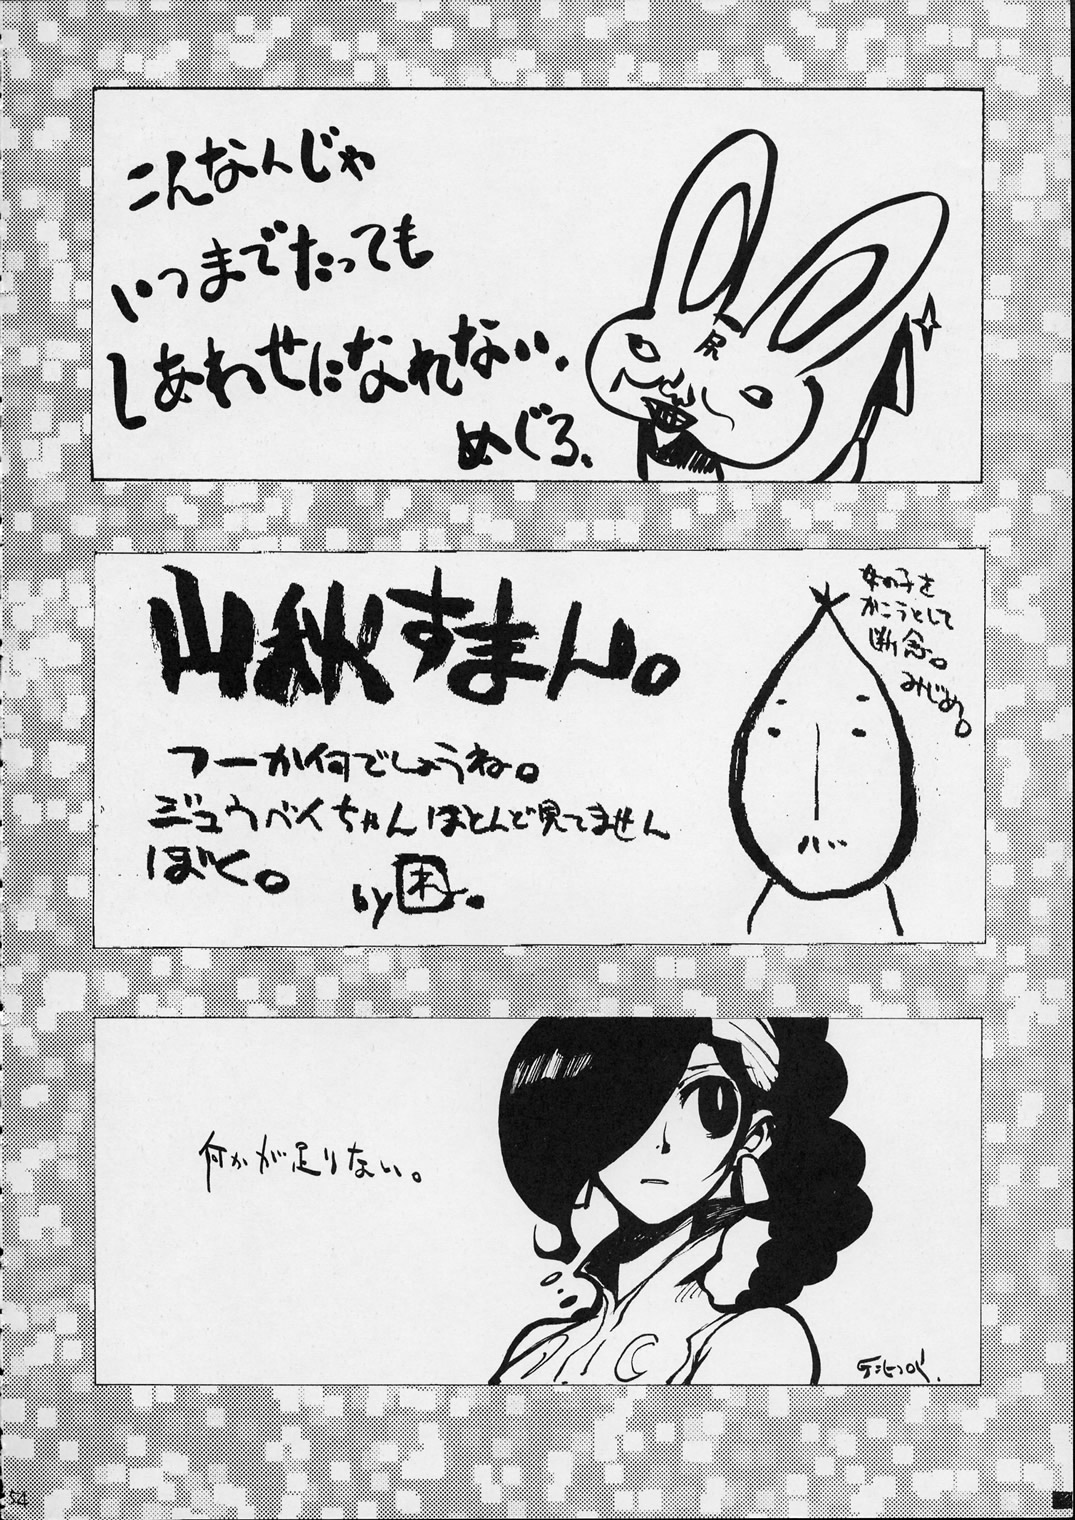 こんなんじゃ
いつまでたっても
しあわせになれない.
めぐろ.
尻
山秋すまん。
女の子を
かこうとして
断念。
みじめ。
フーか何でしょうね。
ジュウベイちゃんほとんど見てません
ぼく。
by困。
何かが足りない。
54